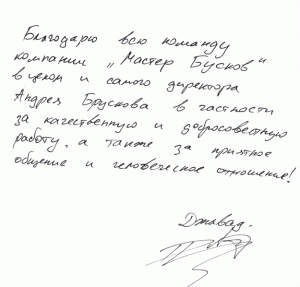 Благодарю всю команду
компании „Мастер Бусков"
в целом и самого директора
Андрея Брускова в частности
за качественную и добросовестную
работу, а также за приятное
общение и человеческое отношение!
Джавад.